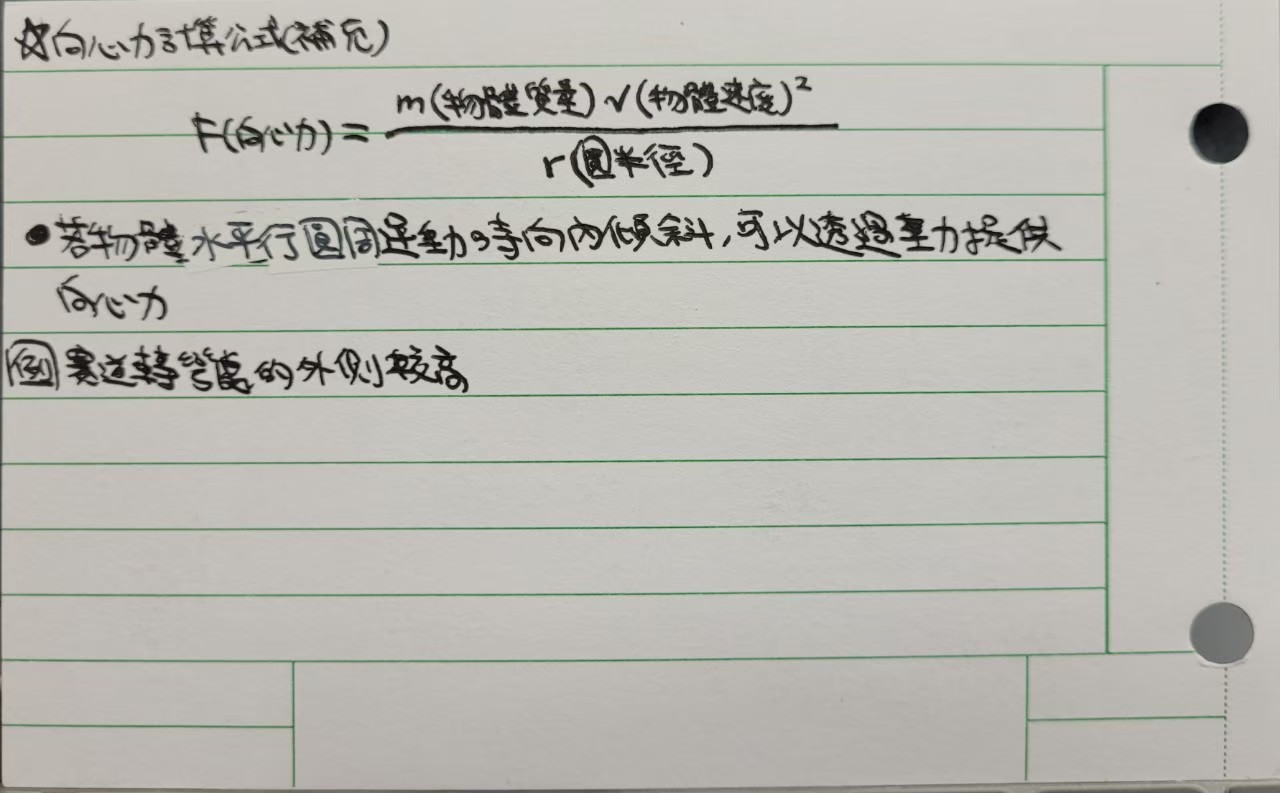 ☆向心力計算公式(補充)
F(向心力) = m(物體質量) v(物體速度)² / r(圓半徑)
● 若物體水平行圓周運動時向內傾斜,可以透過重力提供
向心力
例 賽道轉彎處的外側較高